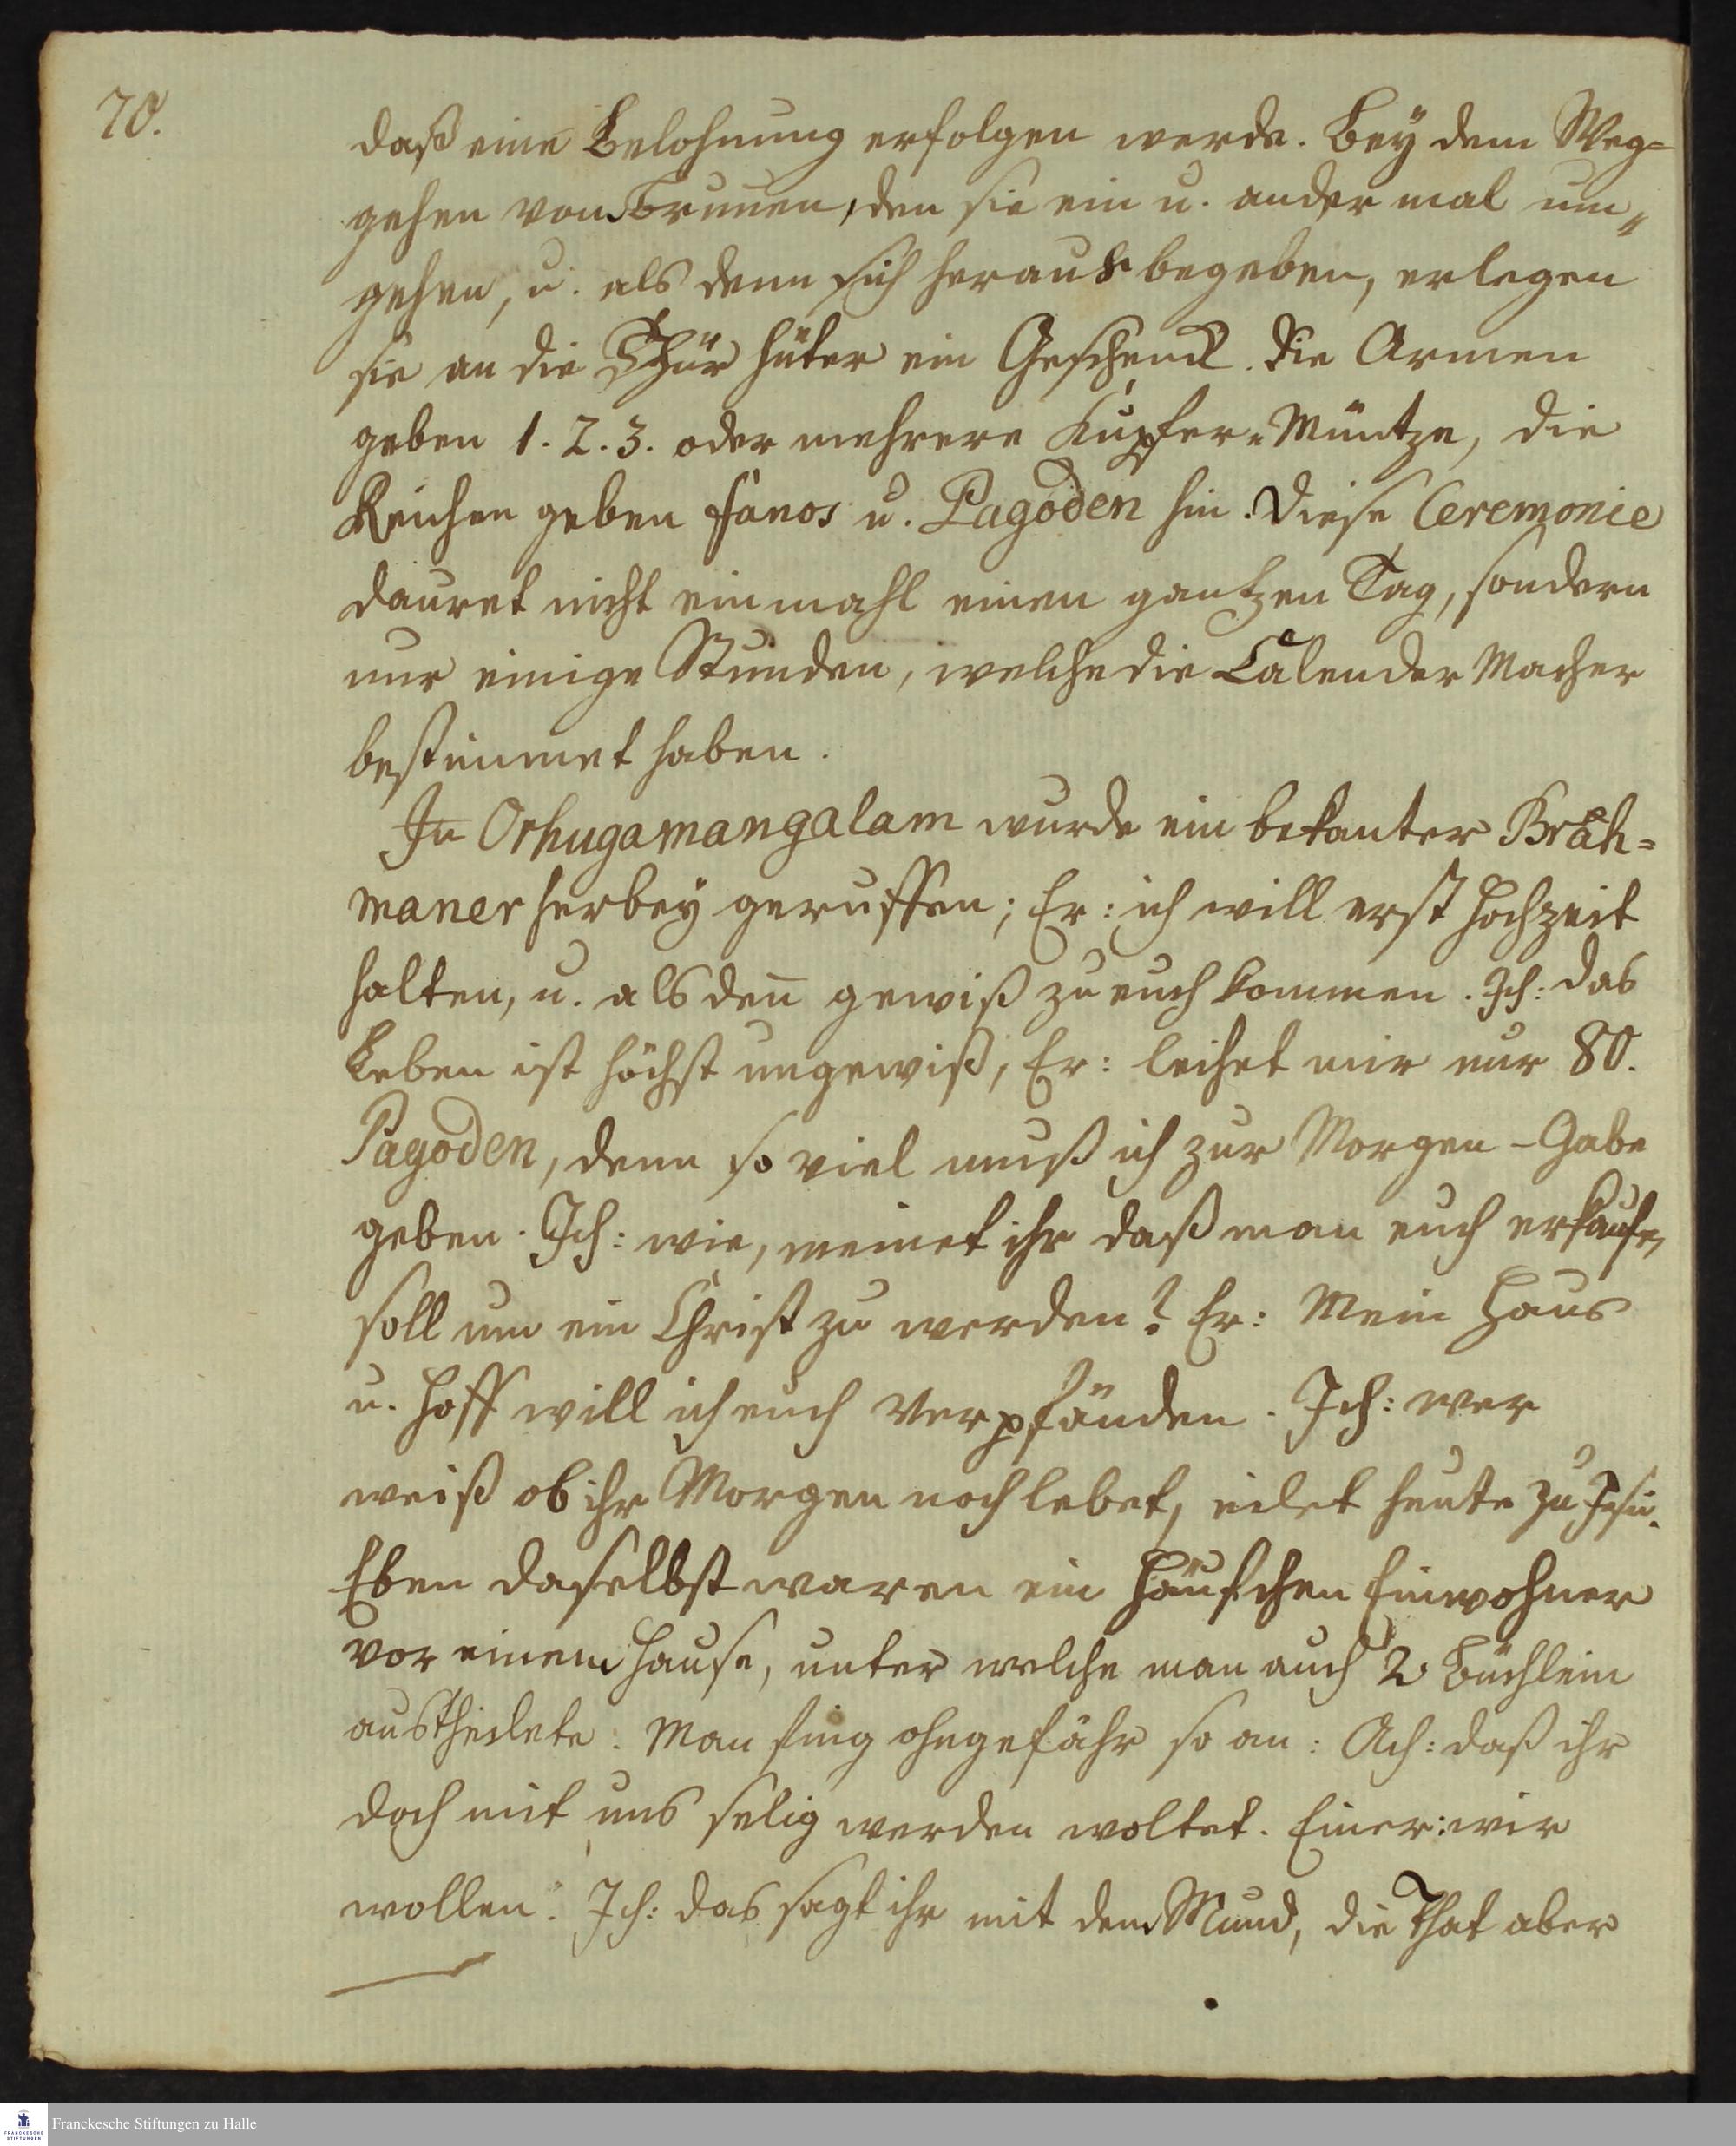 70.
daß eine Belohnung erfolgen werde. Bey dem Weg=
gehen von Brunnen, den sie ein u. ander mal um„
gehen, u. als denn sich heraus begeben, erlegen
sie an die Thür hüter ein Geschenck. Die Armen
geben 1. 2. 3. oder mehrere Kupfer-Müntze, die
Reichen geben fanos u. Pagoden hin. Diese Ceremonie
dauret nicht einmahl einen gantzen Tag, sondern
nur einige Stunden, welche die Calender Macher
bestimmet haben.
In Orhugamangalam wurde ein bekanter Bräh=
maner herbey geruffen; Er: ich will erst Hochzeit
halten, u. als deñ gewiß zu euch kommen. Ich: das
Leben ist höchst ungewiß, Er: leihet mir nur 80.
Pagoden, denn so viel muß ich zur Morgen-Gabe
geben. Ich: wie, meinet ihr daß man euch erkaufe,
soll um ein Christ zu werden? Er: Mein Haus
u. Hoff will ich euch verpfänden. Ich: wer
weiß ob ihr Morgen noch lebet, eilet heute zu Jesu.
Eben daselbst waren ein Häufchen Einwohner
vor einem Hause, unter welche man auch 2 Büchlein
austheilete. Man fing ohngefähr so an: Ach: daß ihr
doch mit uns selig werden woltet. Einer: wir
wollen. Ich: das sagt ihr mit dem Mund, die That aber
Franckesche Stiftungen zu Halle
FRANCKESCHE
STIFTUNGEN